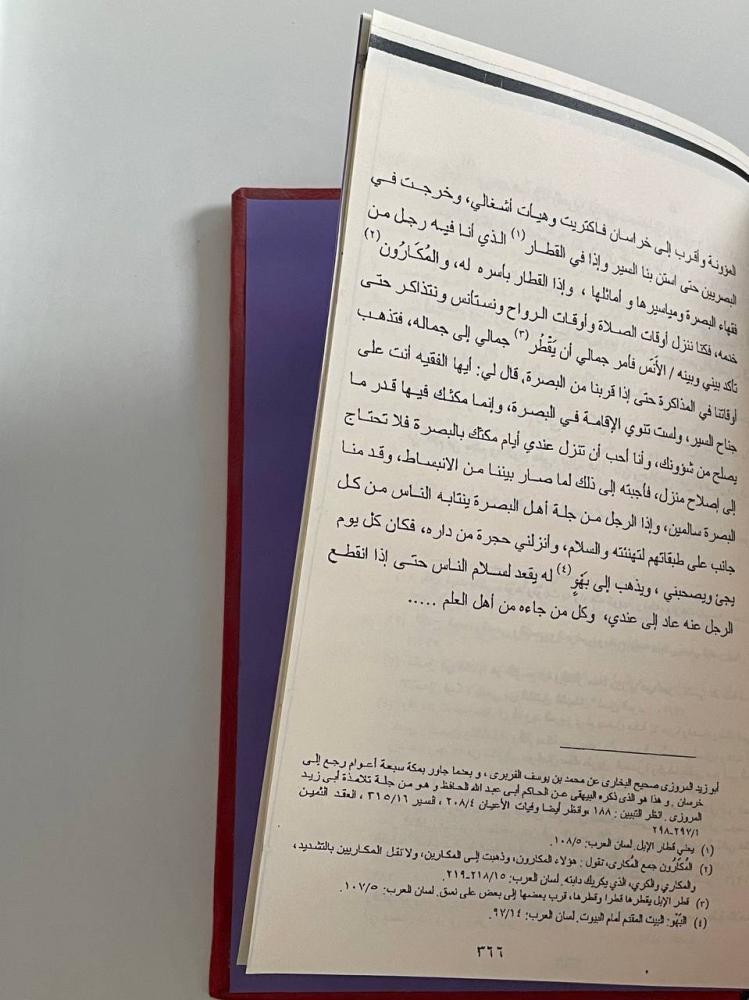 المزونة وأقرب إلى خراسان فاكتريت وهيأت أشغالي، وخرجت في
البصريين حتى استن بنا السير وإذا في القطار(١) الذي أنا فيه رجل من
فقهاء البصرة ومياسيرها و أماثلها ، وإذا القطار بأسره له، والمُكَارُون(٢)
خدمه، فكنا ننزل أوقات الصلاة وأوقات الرواح ونستأنس ونتذاكر حتى
تأكد بيني وبينه / الأُنَس فأمر جمالي أن يَقْطُر(٣) جمالي إلى جماله، فتذهب
أوقاتنا في المذاكرة حتى إذا قربنا من البصرة، قال لي: أيها الفقيه أنت على
جناح السير، ولست تنوي الإقامة في البصرة، وإنما مكثك فيها قدر ما
يصلح من شؤونك، وأنا أحب أن تنزل عندي أيام مكثك بالبصرة فلا تحتاج
إلى إصلاح منزل، فأجبته إلى ذلك لما صار بيننا من الانبساط، وقدمنا
البصرة سالمين، وإذا الرجل من جلة أهل البصرة ينتابه الناس من كل
جانب على طبقاتهم لتهنئته والسلام، وأنزلني حجرة من داره، فكان كل يوم
يجئ ويصحبني ، ويذهب إلى بَهْوٍ(٤) له يقعد لسلام الناس حتى إذا انقطع
الرجل عنه عاد إلى عندي، وكل من جاءه من أهل العلم .....
أبو زيد المروزى صحيح البخارى عن محمد بن يوسف الفربرى ، و بعدما جاور بمكة سبعة أعوام رجع إلى
خرسان . و هذا هو الذى ذكره البيهقى عن الحاكم أبى عبد الله الحافظ و هو من جلة تلامذة أبى زيد
المروزى. انظر التبيين : ١٨٨ ،وانظر أيضا وفيات الأعيان ٢٠٨/٤ ، السير ٣١٥/١٦ ، العقد الثمين
٢٩٧/١-٢٩٨
(١) يعني قطار الإبل. لسان العرب: ١٠٨/٥.
(٢) المُكَارُون جمع المُكارى، تقول : هؤلاء المكارون، وذهبت إلى المكارين، ولا تقل المكاريين بالتشديد ،
والمكاري والكري، الذي يكريك دابته. لسان العرب: ٢١٨/١٥-٢١٩.
(٣) قطر الإبل يقطرها قطرا وقطرها، قرب بعضها إلى بعض على نسق. لسان العرب: ١٠٧/٥.
(٤) البَهْو: البيت المقدم أمام البيوت. لسان العرب: ٩٧/١٤.
٣٦٦